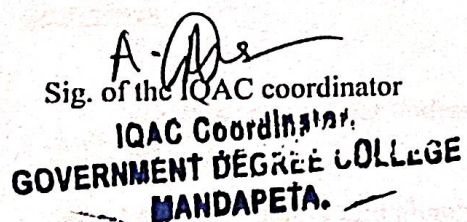 Sig. of the IQAC coordinator
IQAC Coordinator,
GOVERNMENT DEGREE COLLEGE
MANDAPETA.